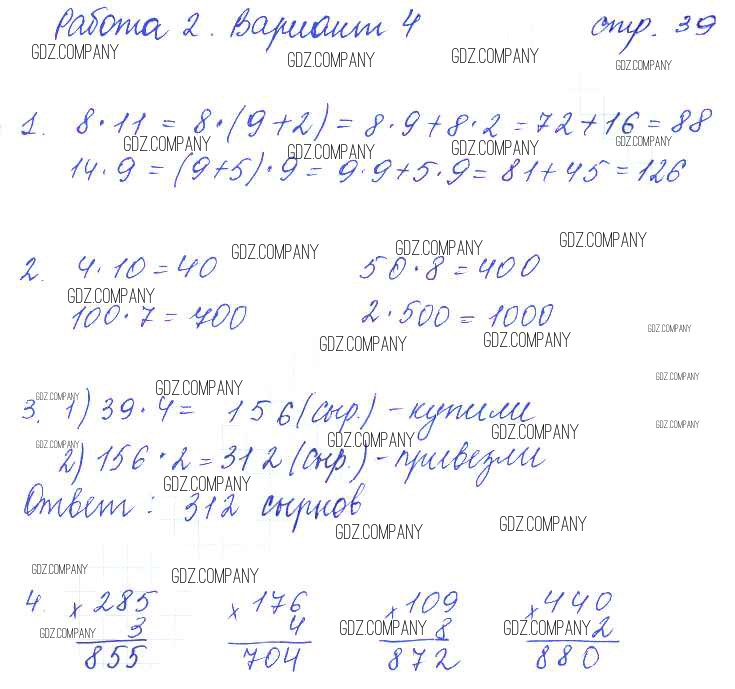 Работа 2. Вариант 4 стр. 39
GDZ.COMPANY GDZ.COMPANY GDZ.COMPANY GDZ.COMPANY
1. 8·11 = 8·(9+2) = 8·9+8·2 = 72+16 = 88
GDZ.COMPANY GDZ.COMPANY GDZ.COMPANY GDZ.COMPANY
14·9 = (9+5)·9 = 9·9+5·9 = 81+45 = 126
GDZ.COMPANY GDZ.COMPANY GDZ.COMPANY
2. 4·10 = 40 50·8 = 400
GDZ.COMPANY
100·7 = 700 2·500 = 1000
GDZ.COMPANY GDZ.COMPANY GDZ.COMPANY
GDZ.COMPANY GDZ.COMPANY GDZ.COMPANY
3. 1) 39·4 = 156 (сыр.) - купили
GDZ.COMPANY GDZ.COMPANY GDZ.COMPANY GDZ.COMPANY
2) 156·2 = 312 (сыр.) - привезли
GDZ.COMPANY
Ответ: 312 сырков
GDZ.COMPANY GDZ.COMPANY
GDZ.COMPANY GDZ.COMPANY
4. x 285 x 176 x 109 x 440
3 4 8 2
GDZ.COMPANY GDZ.COMPANY GDZ.COMPANY
855 704 872 880